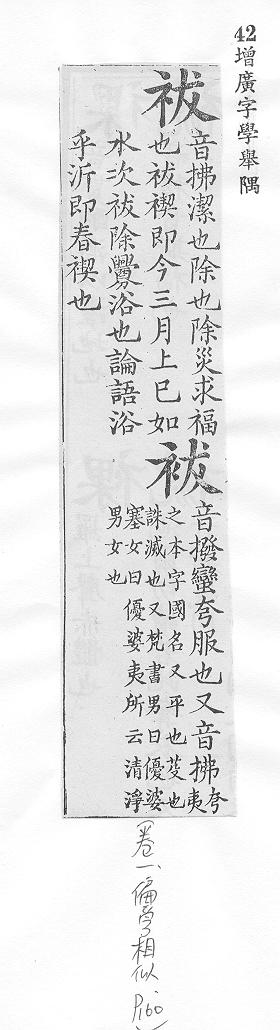 42增廣字學舉隅
祓
音拂潔也除也除災求福
也祓禊即今三月上巳如
水次祓除釁浴也論語浴
乎沂即春禊也
袚
音撥蠻夸服也又音拂夸夷
之本字國名又平也芟也
誅滅也又梵書男曰優婆
塞女曰優婆夷所云清淨
男女也
(卷一、偏旁相似 P160)